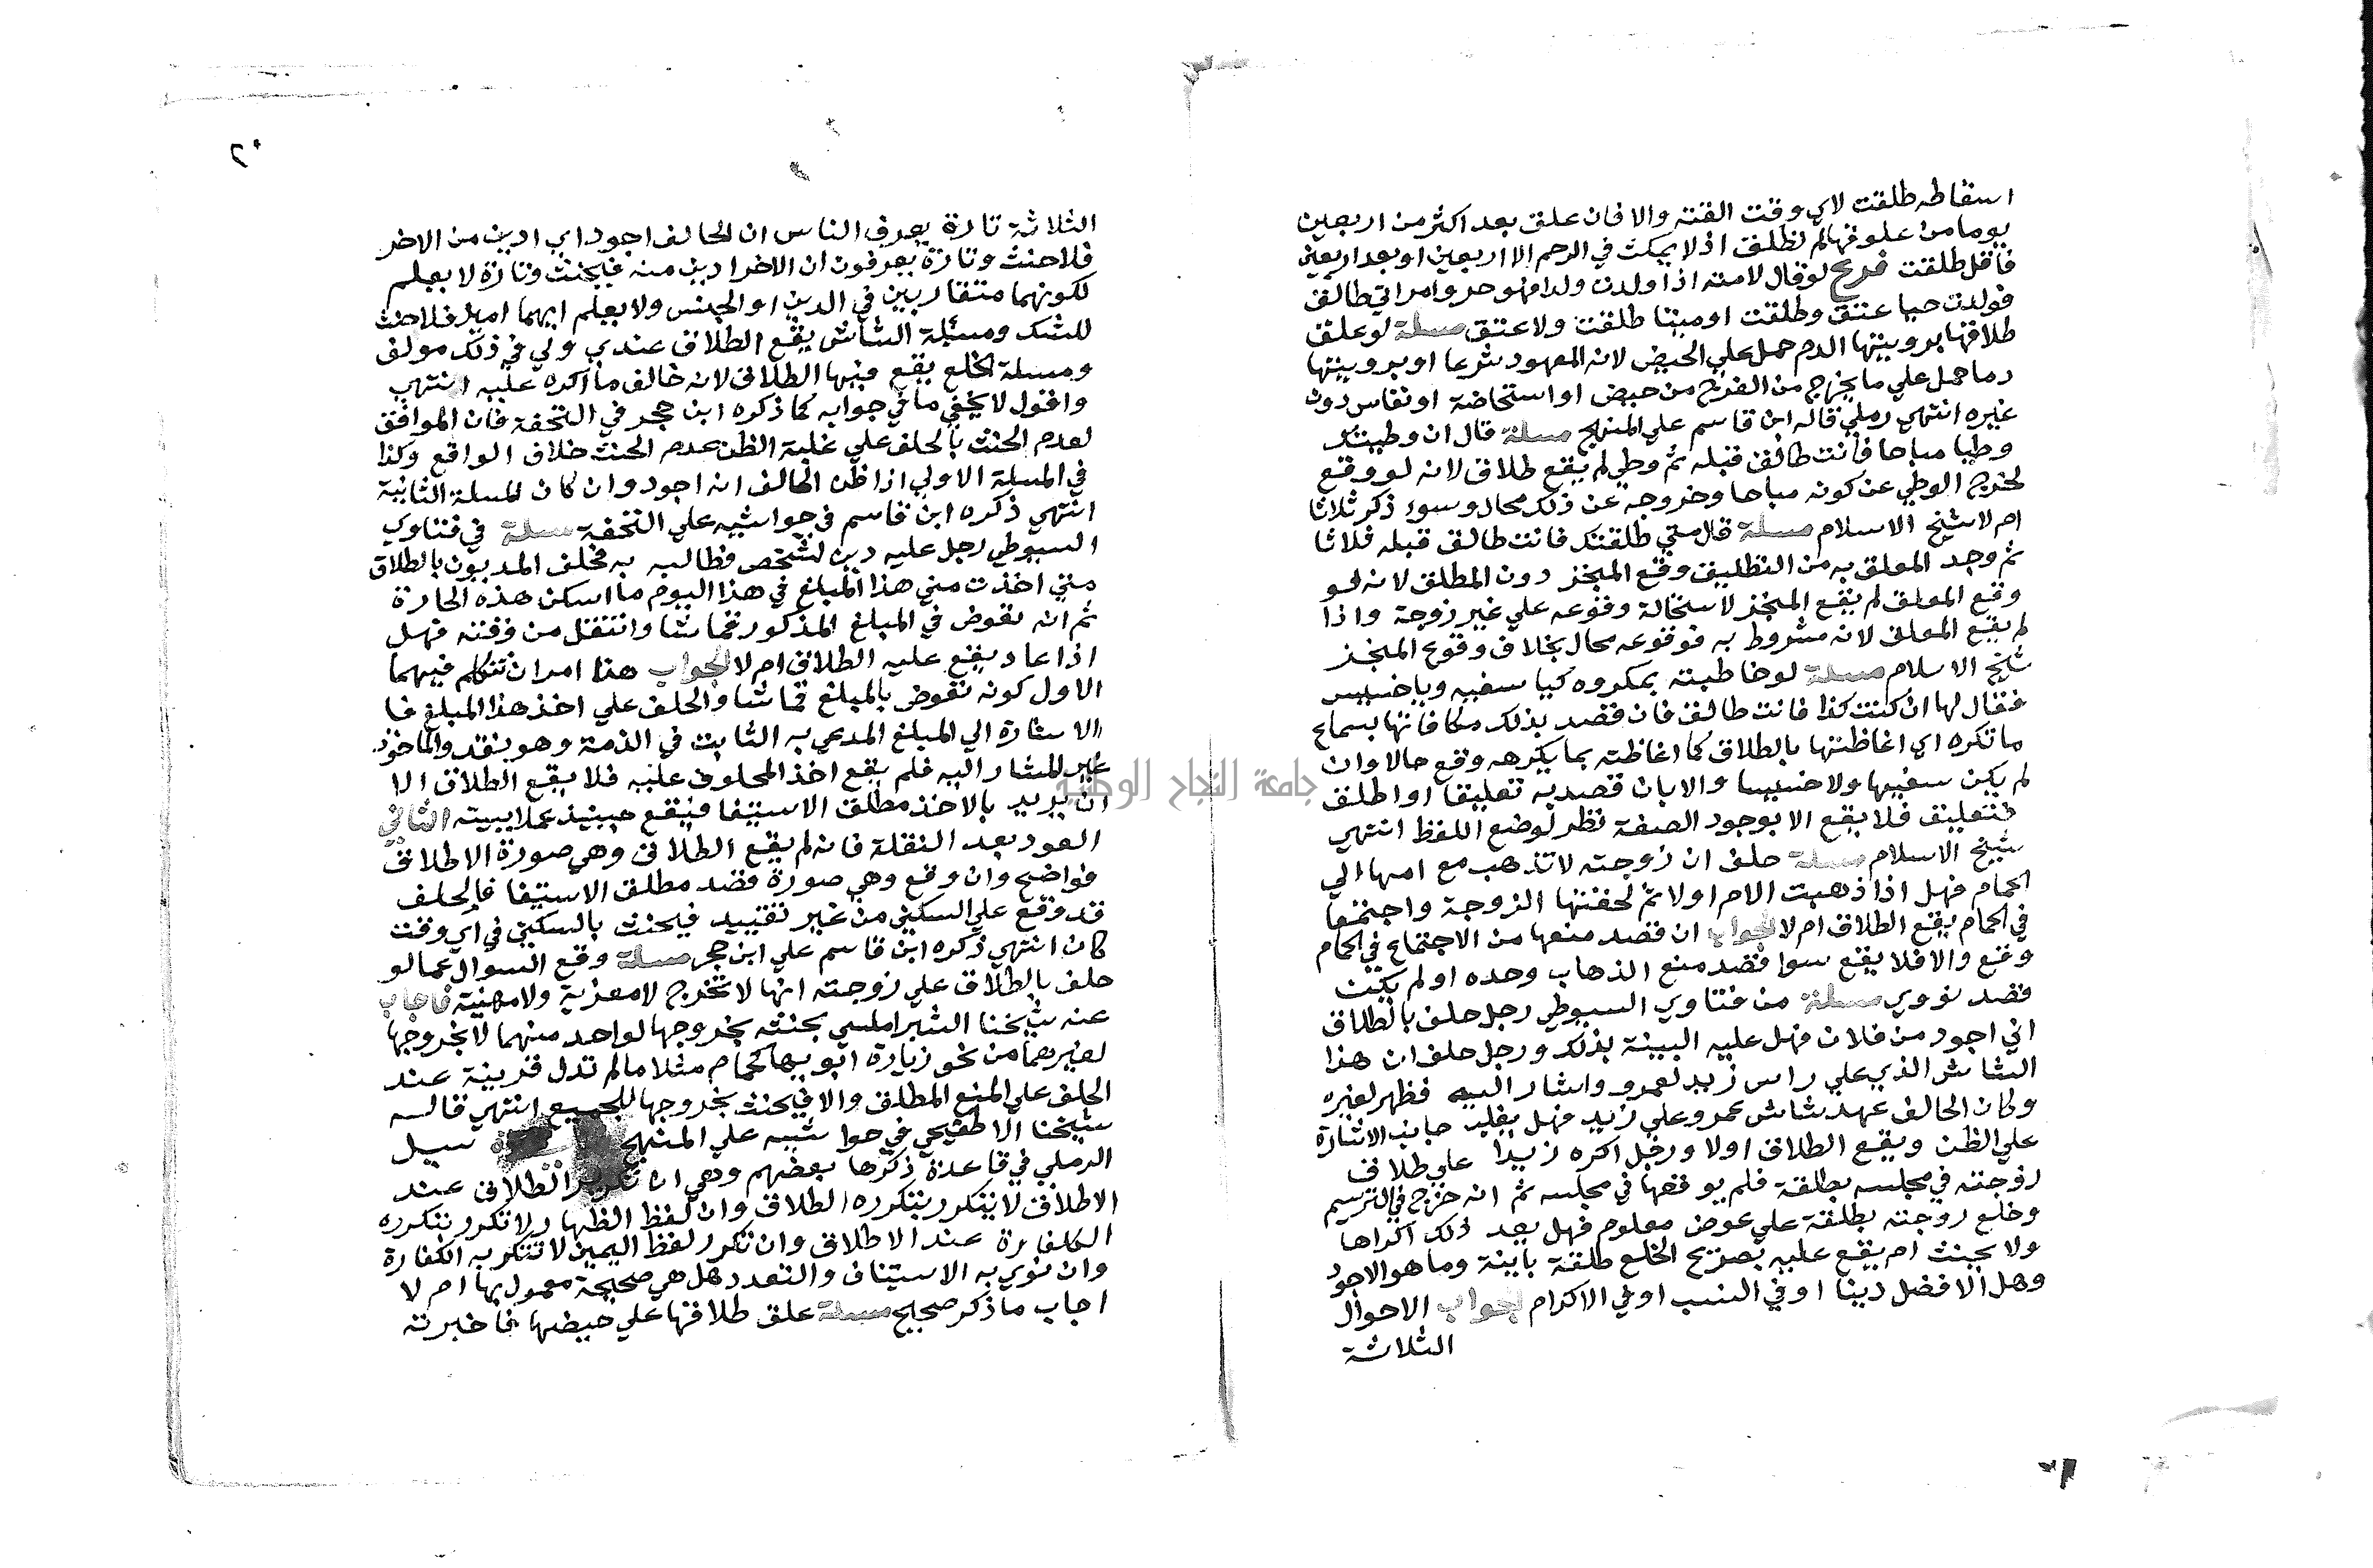 اسقاطه طلقت لاي وقت القته والا فان علق بعد اكثر من اربعين
يوما من علوقها لم تطلق اذ لا يمكث في الرحم الا اربعين او بعد اربعين
فاقل طلقت فرع لو قال لامته اذا ولدت ولدا فهو حر وامراتي طالق
فولدت حيا عتق وطلقت او ميتا طلقت ولا عتق مسلة لو علق
طلاقها برويتها الدم حمل علي الحيض لانه المعهود شرعا او برويتها
دما حمل علي ما يخرج من الفرج من حيض او استحاضة او نفاس دون
غيره انتهي رملي قاله ابن قاسم علي المنهج مسلة قال ان وطيتك
وطيا مباحا فانت طالق قبله ثم وطي لم يقع طلاق لانه لو وقع
لخرج الوطي عن كونه مباحا وخروجه عن ذلك محال وسوء ذكر ثلاثا
ام لا شيخ الاسلام مسلة قال متي طلقتك فانت طالق قبله ثلاثا
ثم وجد المعلق به من التطليق وقع المنجز دون المطلق لانه لو
وقع المعلق لم يقع المنجز لاستحالة وقوعه علي غير زوجة واذا
لم يقع المعلق لانه مشروط به فوقوعه محال بخلاف وقوع المنجز
شيخ الاسلام مسلة لو خاطبته بمكروه كيا سفيه ويا خسيس
فقال لها ان كنت كذا فانت طالق فان قصد بذلك مكافاتها بسماع
ما تكره اي اغاظتها بالطلاق كما اغاظته بما يكرهه وقع حالا وان
لم يكن سفيها ولا خسيسا والا بان قصد به تعليقا او اطلق
فتعليق فلا يقع الا بوجود الصفة نظر لوضع اللفظ انتهي
شيخ الاسلام مسلة حلف ان زوجته لا تذهب مع امها الي
الحمام فهل اذا ذهبت الام اولا ثم لحقتها الزوجة واجتمعا
في الحمام يقع الطلاق ام لا الجواب ان قصد منعها من الاجتماع في الحمام
وقع والا فلا يقع سوا قصد منع الذهاب وحده او لم يكن
قصد نووي مسلة من فتاوي السيوطي رجل حلف بالطلاق
اني اجود من فلان فهل عليه البينة بذلك ورجل حلف ان هذا
الشاش الذي علي راس زيد لعمرو واشار اليه فظهر لغيره
وكان الحالف عهد شاش عمرو علي زيد فهل يغلب جانب الاشارة
علي الظن ويقع الطلاق اولا ورجل اكره زيدا علي طلاق
زوجته في مجلسه بطلقة فلم يوقعها في مجلسه ثم انه خرج في الترسيم
وخلع زوجته بطلقة علي عوض معلوم فهل يعد ذلك اكراها
ولا يحنث ام يقع عليه بصريح الخلع طلقة باينة وما هو الاجود
وهل الافضل دينا او في النسب او في الاكرام الجواب الاحوال
الثلاثة
٢٠
الثلاثة تارة يعرف الناس ان الحالف اجود اي ادين من الاخر
فلا حنث وتارة يعرفون ان الاخر ادين منه فيحنث وتارة لا يعلم
لكونهما متقاربين في الدين او الجنس ولا يعلم ايهما اميل فلا حنث
للشك ومسئلة الشاش يقع الطلاق عندي ولي في ذلك مولف
ومسلة الخلع يقع فيها الطلاق لانه خالف ما اكره عليه انتهي
واقول لا يخفي ما في جوابه كما ذكره ابن حجر في التحفة فان الموافق
لعدم الحنث بالحلف علي غلبة الظن عدم الحنث خلاف الواقع وكذا
في المسلة الاولي اذا ظن الحالف انه اجود وان كان المسلة الثانية
انتهي ذكره ابن قاسم في حواشيه علي التحفة مسلة في فتاوي
السيوطي رجل عليه دين لشخص فطالبه به فحلف المديون بالطلاق
متي اخذت مني هذا المبلغ في هذا اليوم ما اسكن هذه الحارة
ثم انه تعوض في المبلغ المذكور قماشا وانتقل من وقته فهل
اذا عاد يقع عليه الطلاق ام لا الجواب هذا امران نتكلم فيهما
الاول كونه تعوض بالمبلغ قماشا والحلف علي اخذ هذا المبلغ فا
الاشارة الي المبلغ المدعي به الثابت في الذمة وهو نقد والماخوذ
غير المشار اليه فلم يقع اخذ المحلوف عليه فلا يقع الطلاق الا
ان يريد بالاخذ مطلق الاستيفا فيقع حينيذ عملا بنيته الثاني
العود بعد النقلة فانه لم يقع الطلاق وهي صورة الاطلاق
فواضح وان وقع وهي صورة قصد مطلق الاستيفا فالحلف
قد وقع علي السكني من غير تقييد فيحنث بالسكني في اي وقت
كان انتهي ذكره ابن قاسم علي ابن حجر مسلة وقع السوال عما لو
حلف بالطلاق علي زوجته انها لا تخرج لا معزية ولا مهنية فاجاب
عنه شيخنا الشبراملسي بحنثه بخروجها لواحد منهما لا بخروجها
لغيرهما من نحو زيارة ابويها كحمام مثلا ما لم تدل قرينة عند
الحلف علي المنع المطلق والا فيحنث بخروجها للجميع انتهي قاله
شيخنا الاطفيحي في حواشيه علي المنهج سيل
الرملي في قاعدة ذكرها بعضهم وهي ان تكرير الطلاق عند
الاطلاق لا يتكرر بتكرره الطلاق وان لفظ الظهار لا تكرر بتكرره
الكلفارة عند الاطلاق وان تكرر لفظ اليمين لا تتكرر به الكفارة
وان نوي به الاستيناف والتعدد هل هي صحيحة معمول بها ام لا
اجاب ما ذكر صحيح مسلة علق طلاقها علي حيضها فاخبرته
جامعة النجاح الوطنية